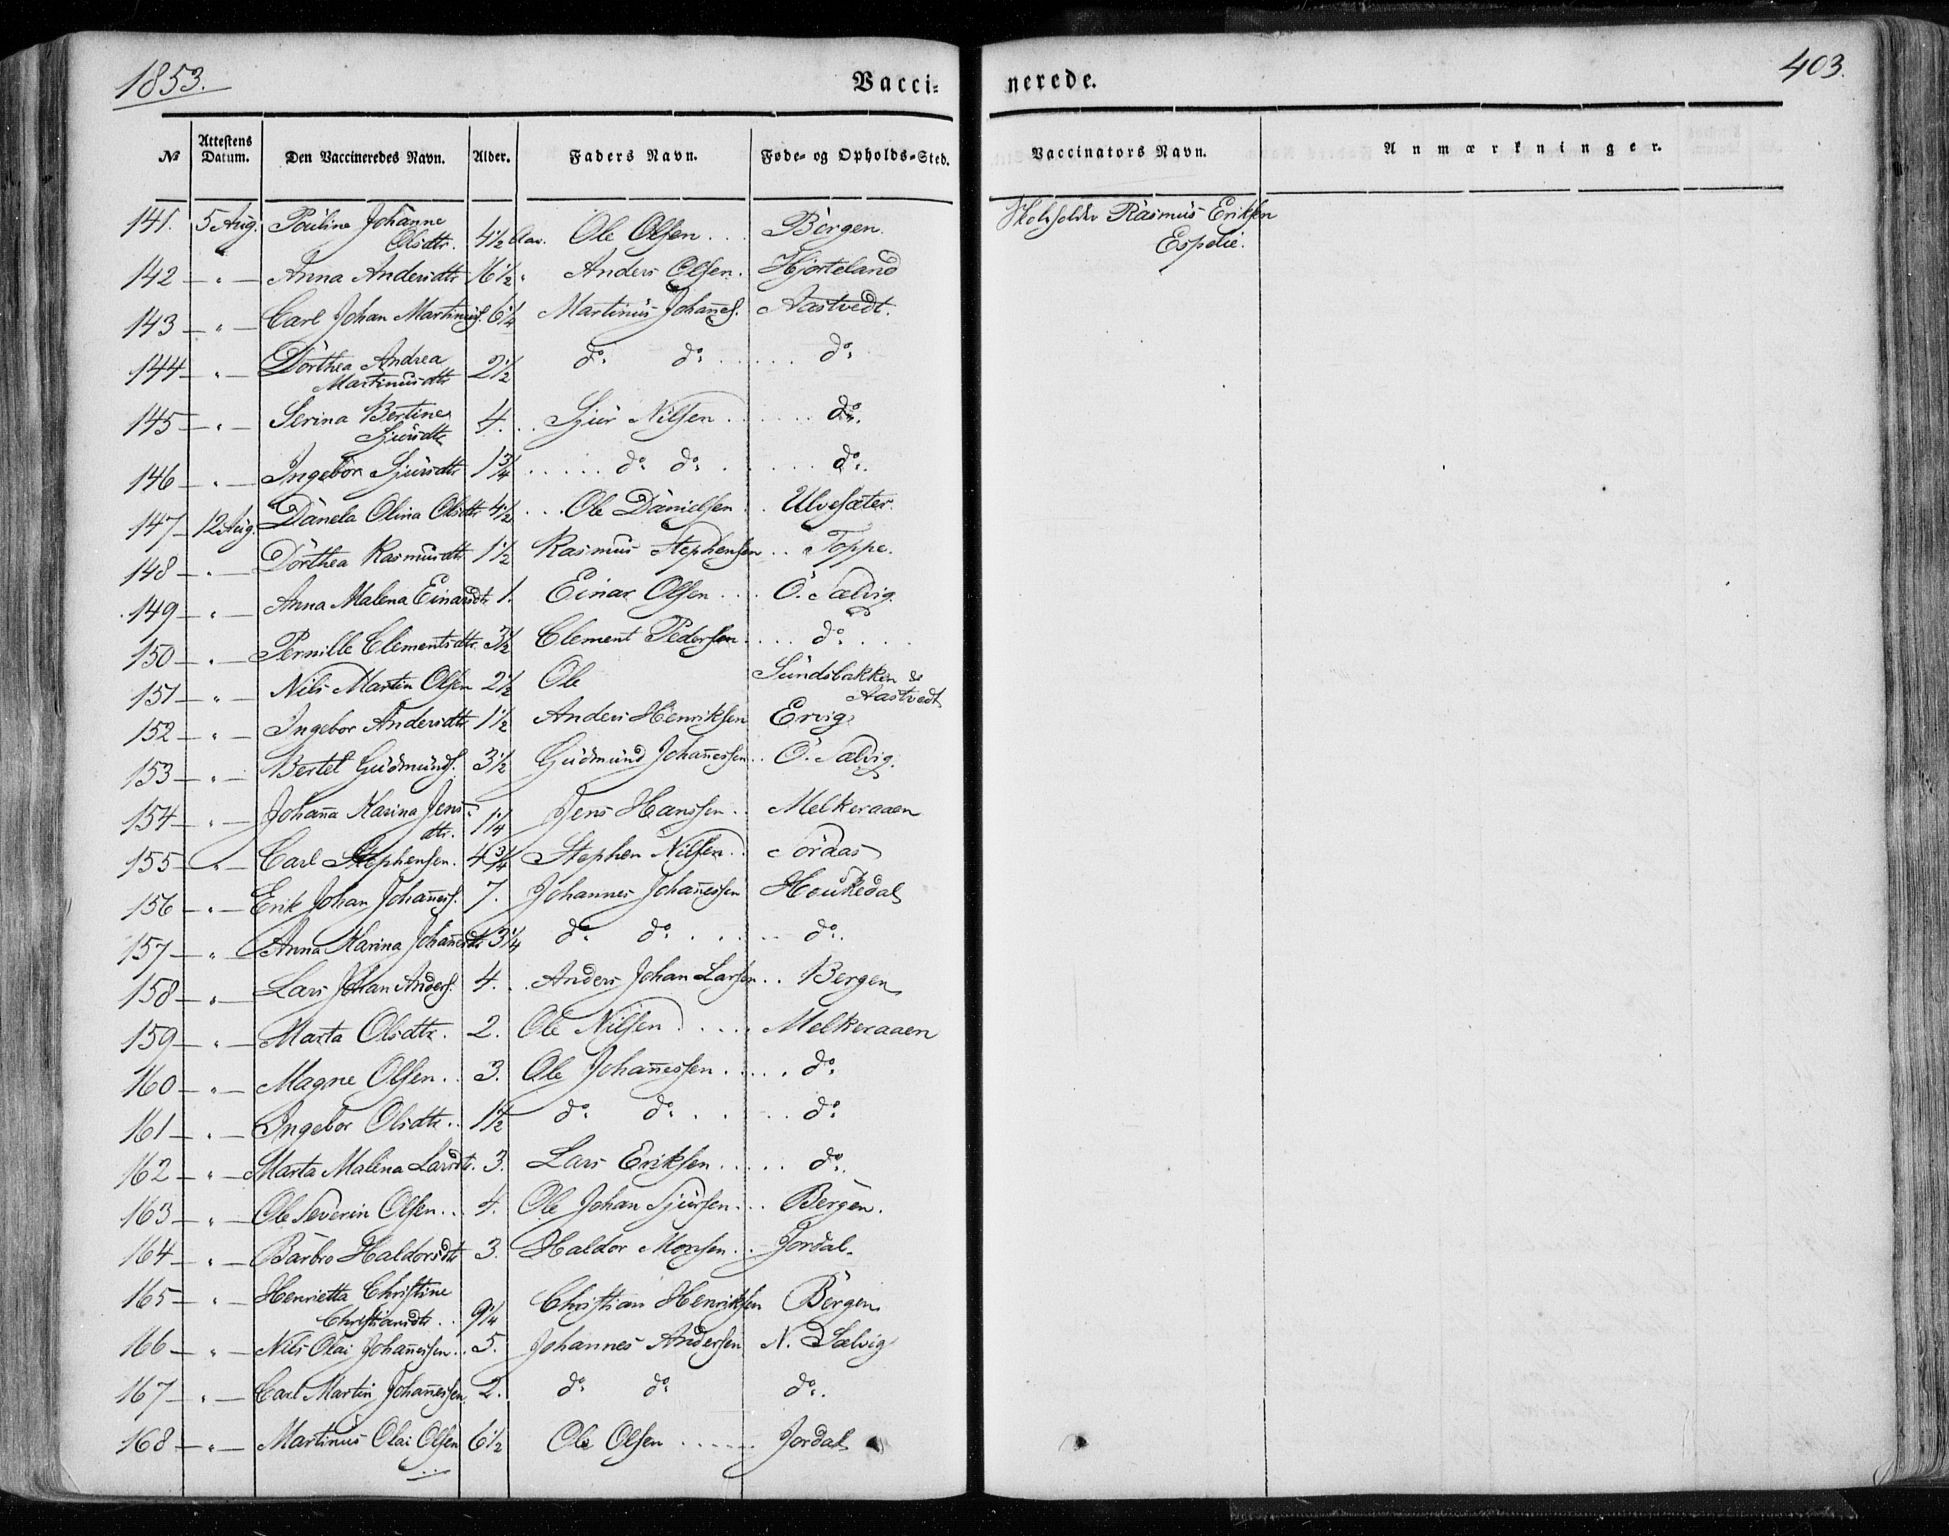 1853. Vacci= nerede. 403.
№ Attestens Datum. Den Vaccineredes Navn. Alder. Faders Navn. Føde- og Opholds-Sted. Vaccinators Navn. Anmærkninger.
141. 5 Aug. Pouline Johanne Olsdtr. 4½ Aar. Ole Olsen . . . Bergen. Skoleholder Rasmus Eriksen Espelie.
142 — " — Anna Andersdtr 16½ " Anders Olsen. Hjorteland
143 — " — Carl Johan Martinus. 6¼ Martinus Johañes. Aastvedt.
144 — " — Dorthea Andrea Martinusdtr 2½ do. do. . . . . . do.
145 — " — Serina Bertine Sjursdtr 4. . . Sjur Nilsen . . . . . . do.
146 — " — Ingebor Sjursdtr 1¾ . . . . . do. do. . . . . . do.
147 — 12 Aug. Danela Olina Olsdtr 4½ . . . Ole Danielsen . . Ulvesæter.
148 — " — Dorthea Rasmusdtr 1½ Rasmus Stephensen . . Toppe.
149 — " — Anna Malena Einarsdtr 1. Einar Olsen . . . Ö. Sælvig
150 — " — Pernille Clementsdtr. 3½ Clement Pedersen . . . . do. . . .
151 — " — Nils Martin Olsen 2½ Ole Sundsbakken & Aastvedt
152 — " — Ingebor Andersdtr 1½ Anders Henriksen Ervig
153 — " — Bertel Gudmunds. 3½ Gudmund Johañessen . . Ö. Sælvig.
154 — " — Johaña Karina Jens- dtr. 1¼ Jens Hanssen . . Melkeraaen
155 — " — Carl Stephensen. 4¾ Stephen Nilsen . . Søraas
156 — " — Erik Johan Johañes. 7. Johannes Johañessen Houkedal
157 — " — Anna Karina Johañesdtr 3¼ do. do. . . . . . do.
158 — " — Lars Johan Anders. 4. . . Anders Johan Larsen . . Bergen
159 — " — Marta Olsdtr. 2. Ole Nilsen . . . . . Melkeraaen
160 — " — Magne Olsen . . 3. Ole Johañessen . . . . . do.
161 — " — Ingebor Olsdtr. . 1½ do. do. . . . . . do.
162 — " — Marta Malena Larsdtr. 3. Lars Eriksen . . . . . do.
163 — " — Ole Severin Olsen . . 4. Ole Johan Sjursen . . . Bergen.
164 — " — Barbro Haldorsdtr 3. Haldor Monsen . . Jordal.
165 — " — Henrietta Christine Christiansdtr. . 9¼ Christian Henriksen Bergen
166 — " — Nils Olai Johañessen . . 5. Johannes Andersen N. Sælvig
167 — " — Carl Martin Johañessen 2. do. do. do.
168 — " — Martinus Olai Olsen 6½ Ole Olsen . . . . . . Jordal